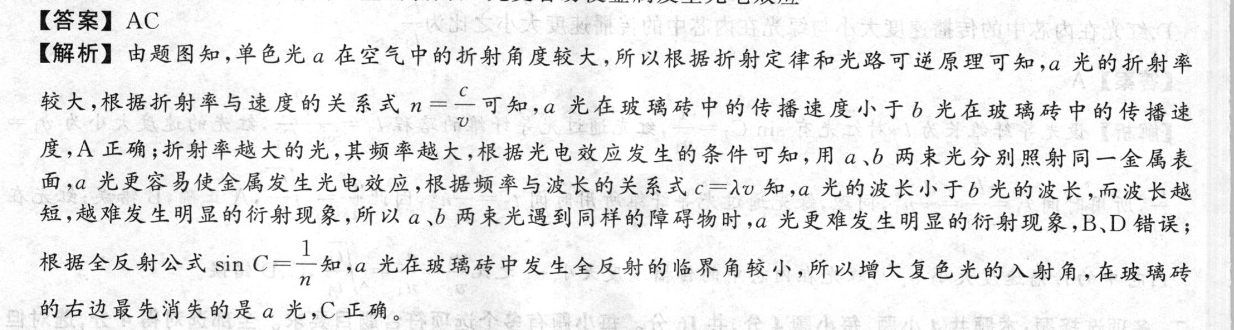 【答案】AC
【解析】由题图知,单色光 a 在空气中的折射角度较大,所以根据折射定律和光路可逆原理可知,a 光的折射率
较大,根据折射率与速度的关系式 n=c/v 可知,a 光在玻璃砖中的传播速度小于 b 光在玻璃砖中的传播速
度,A 正确;折射率越大的光,其频率越大,根据光电效应发生的条件可知,用 a、b 两束光分别照射同一金属表
面,a 光更容易使金属发生光电效应,根据频率与波长的关系式 c=λν 知,a 光的波长小于 b 光的波长,而波长越
短,越难发生明显的衍射现象,所以 a、b 两束光遇到同样的障碍物时,a 光更难发生明显的衍射现象,B、D 错误;
根据全反射公式 sin C=1/n 知,a 光在玻璃砖中发生全反射的临界角较小,所以增大复色光的入射角,在玻璃砖
的右边最先消失的是 a 光,C 正确。